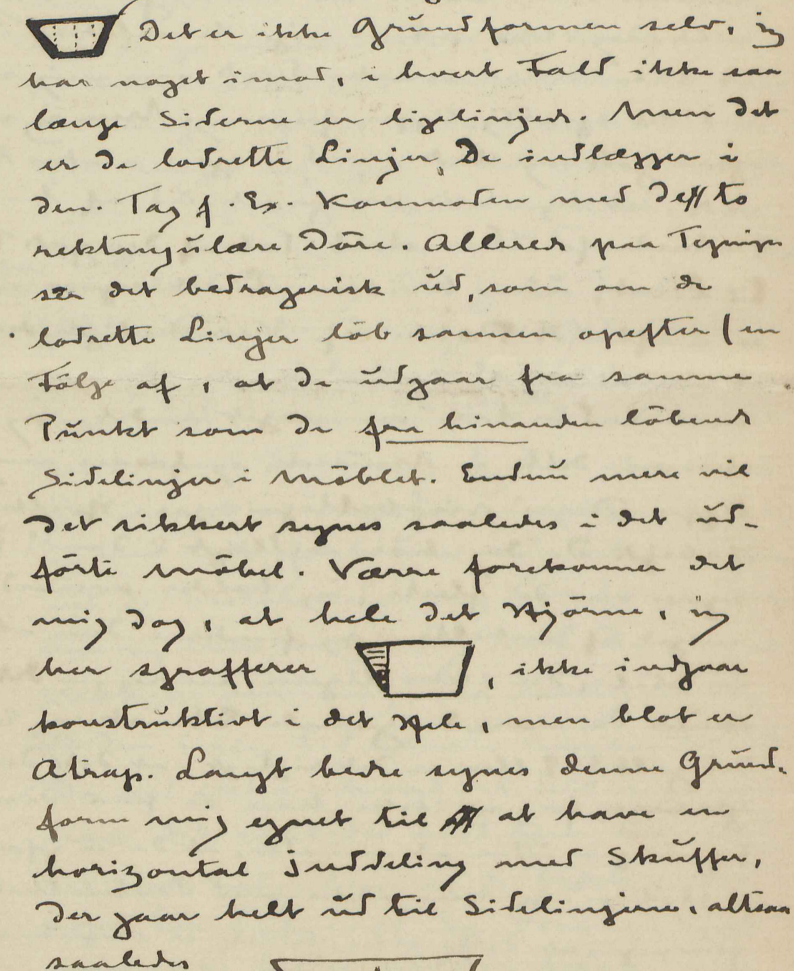 Det er ikke Grundformen selv, jeg
har noget imod, i hvert Fald ikke saa
længe Siderne er ligelinjede. Men det
er de lodrette Linjer, De indlægger i
den. Tag f. Ex. Kommoden med de to
rektangulære Döre. Allerede paa Tegningen
ser det bedragerisk ud, som om de
lodrette Linjer löb sammen opefter (en
Fölge af, at de udgaar fra samme
Punkt som de fra hinanden löbende
Sidelinjer i Möblet. Endnu mere vil
det sikkert synes saaledes i det ud-
förte Möbel. Værre forekommer det
mig dog, at hele det Hjörne, jeg
her sgrafferer , ikke indgaar
konstruktivt i det Hele, men blot er
Atrap. Langt bedre synes denne Grund-
form mig egnet til at have en
horizontal Inddeling med Skuffer,
der gaar helt ud til Sidelinjerne, altsaa
saaledes